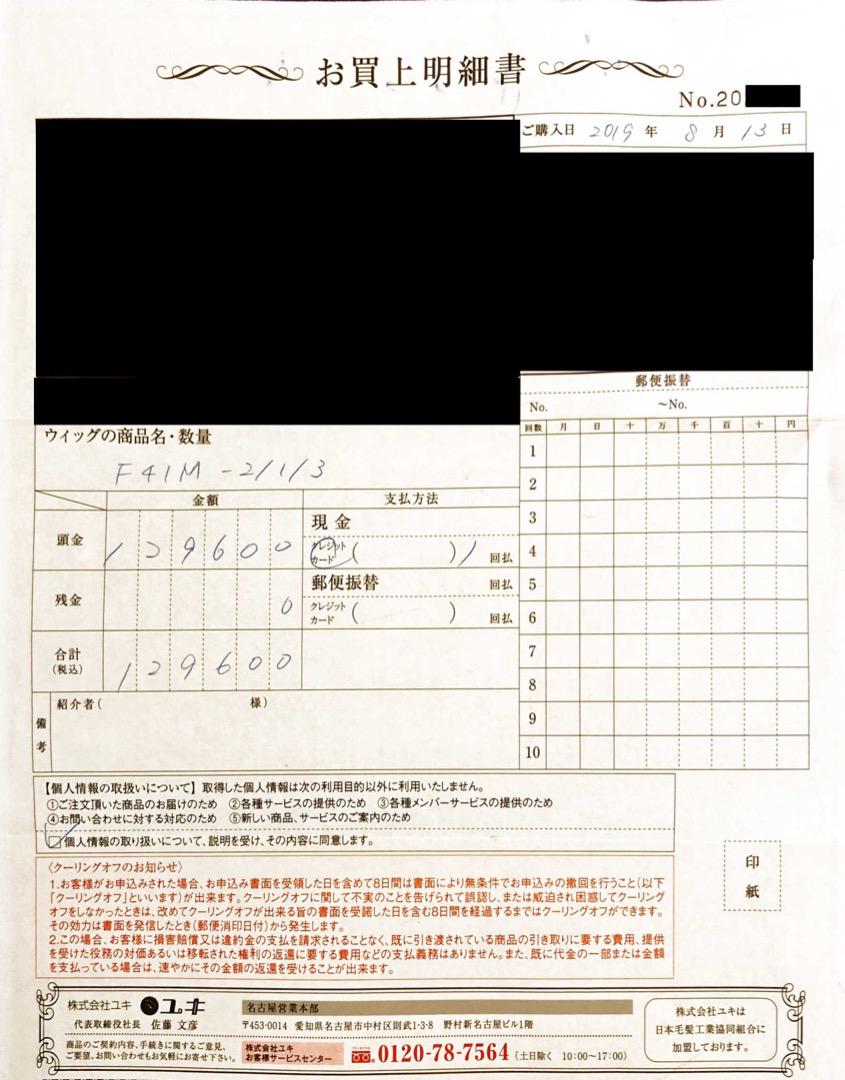 お買上明細書
No.20
ご購入日 2019 年 8 月 13 日
郵便振替
No. 〜No.
回数 月 日 十 万 千 百 十 円
1
2
3
4
5
6
7
8
9
10
ウィッグの商品名・数量
F41M -2/1/3
金額 支払方法
頭金 129600
現金
クレジットカード ( ) 1 回払
残金 0
郵便振替 回払
クレジットカード ( ) 回払
合計(税込) 129600
備考
紹介者( 様)
【個人情報の取扱いについて】取得した個人情報は次の利用目的以外に利用いたしません。
①ご注文頂いた商品のお届けのため ②各種サービスの提供のため ③各種メンバーサービスの提供のため
④お問い合わせに対する対応のため ⑤新しい商品、サービスのご案内のため
個人情報の取り扱いについて、説明を受け、その内容に同意します。
印紙
〈クーリングオフのお知らせ〉
1.お客様がお申込みされた場合、お申込み書面を受領した日を含めて8日間は書面により無条件でお申込みの撤回を行うこと(以下
「クーリングオフ」といいます)が出来ます。クーリングオフに関して不実のことを告げられて誤認し、または威迫され困惑してクーリング
オフをしなかったときは、改めてクーリングオフが出来る旨の書面を受諾した日を含む8日間を経過するまではクーリングオフができます。
その効力は書面を発信したとき(郵便消印日付)から発生します。
2.この場合、お客様に損害賠償又は違約金の支払を請求されることなく、既に引き渡されている商品の引き取りに要する費用、提供
を受けた役務の対価あるいは移転された権利の返還に要する費用などの支払義務はありません。また、既に代金の一部または金額
を支払っている場合は、速やかにその金額の返還を受けることが出来ます。
株式会社ユキ ユキ
代表取締役社長 佐藤 文彦
商品のご契約内容、手続きに関するご意見、
ご要望、お問い合わせもお気軽にお寄せ下さい。
名古屋営業本部
〒453-0014 愛知県名古屋市中村区則武1-3-8 野村新名古屋ビル1階
株式会社ユキ
お客様サービスセンター
0120-78-7564 (土日除く 10:00〜17:00)
株式会社ユキは
日本毛髪工業協同組合に
加盟しております。